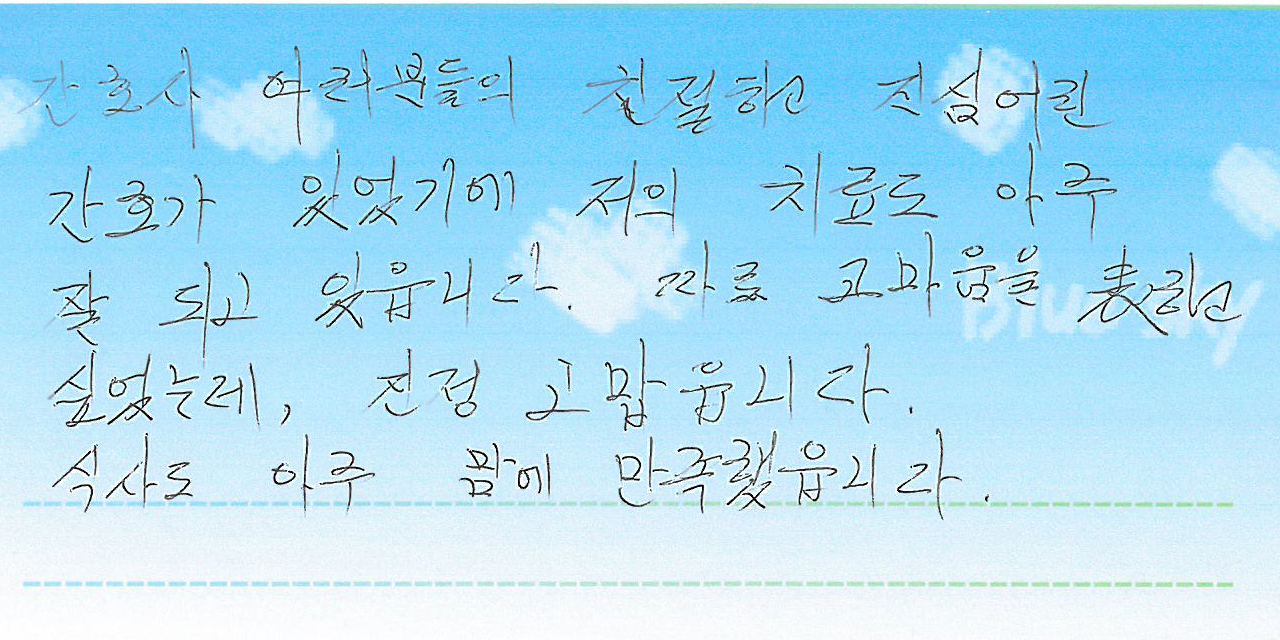 간호사 여러분들의 친절하고 진심어린
간호가 있었기에 저의 치료도 아주
잘 되고 있읍니다. 따로 고마움을 表하고
싶었는데, 진정 고맙읍니다.
식사도 아주 맘에 만족했읍니다.
Blue Sky